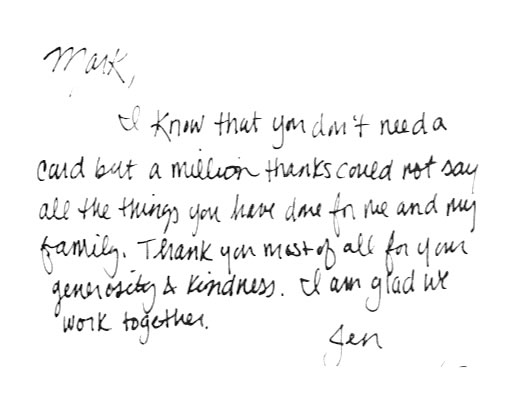 Mark,
I know that you don't need a
card but a million thanks could not say
all the things you have done for me and my
family. Thank you most of all for your
generosity & kindness. I am glad we
work together.
Jen